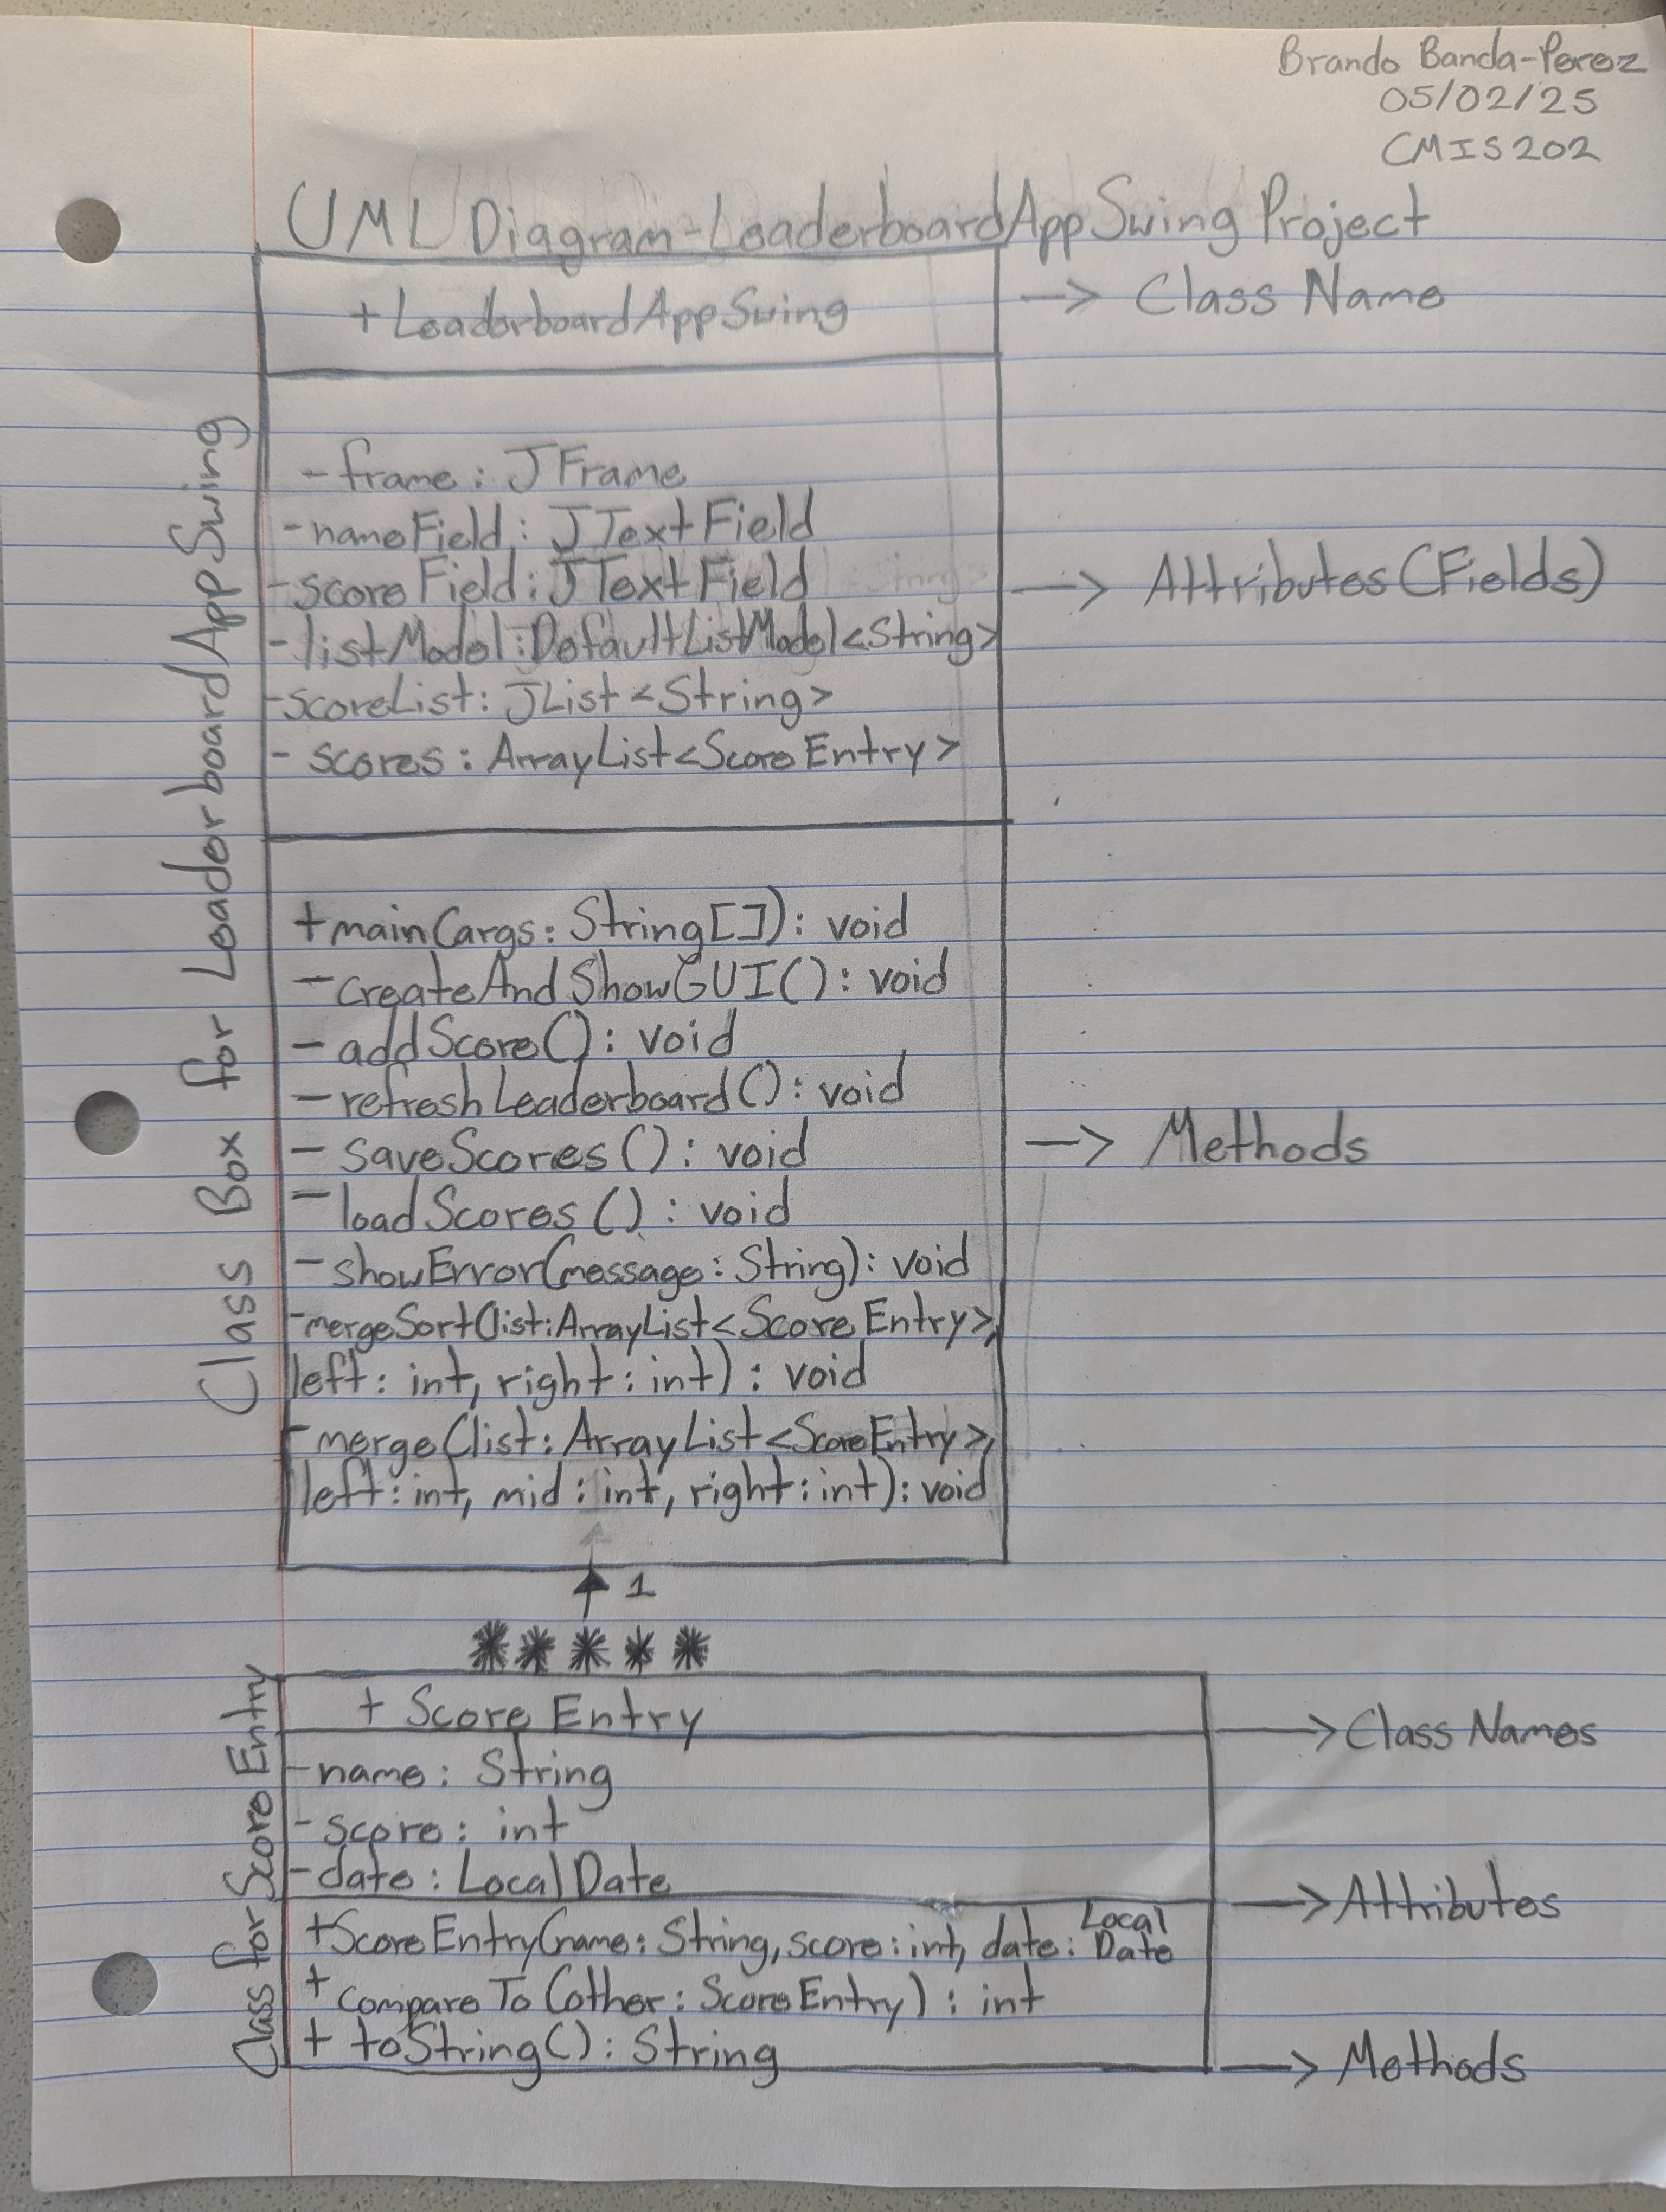 Brando Banda-Perez
05/02/25
CMIS202
UML Diagram-LeaderboardAppSwing Project
+LeaderboardAppSwing
→ Class Name
Class Box for LeaderboardAppSwing
- frame: JFrame
- nameField: JTextField
- scoreField: JTextField
→ Attributes (Fields)
- listModel: DefaultListModel<String>
- scoreList: JList<String>
- scores: ArrayList<ScoreEntry>
+ main(args: String[]): void
- createAndShowGUI(): void
- addScore(): void
- refreshLeaderboard(): void
- saveScores(): void
→ Methods
- loadScores(): void
- showError(message: String): void
- mergeSort(list: ArrayList<ScoreEntry>,
left: int, right: int): void
- merge(list: ArrayList<ScoreEntry>,
left: int, mid: int, right: int): void
1
* * * * *
+ ScoreEntry
→ Class Names
Class for ScoreEntry
- name: String
- score: int
- date: LocalDate
→ Attributes
+ ScoreEntry(name: String, score: int, date: Local
Date
+ compareTo(other: ScoreEntry): int
+ toString(): String
→ Methods